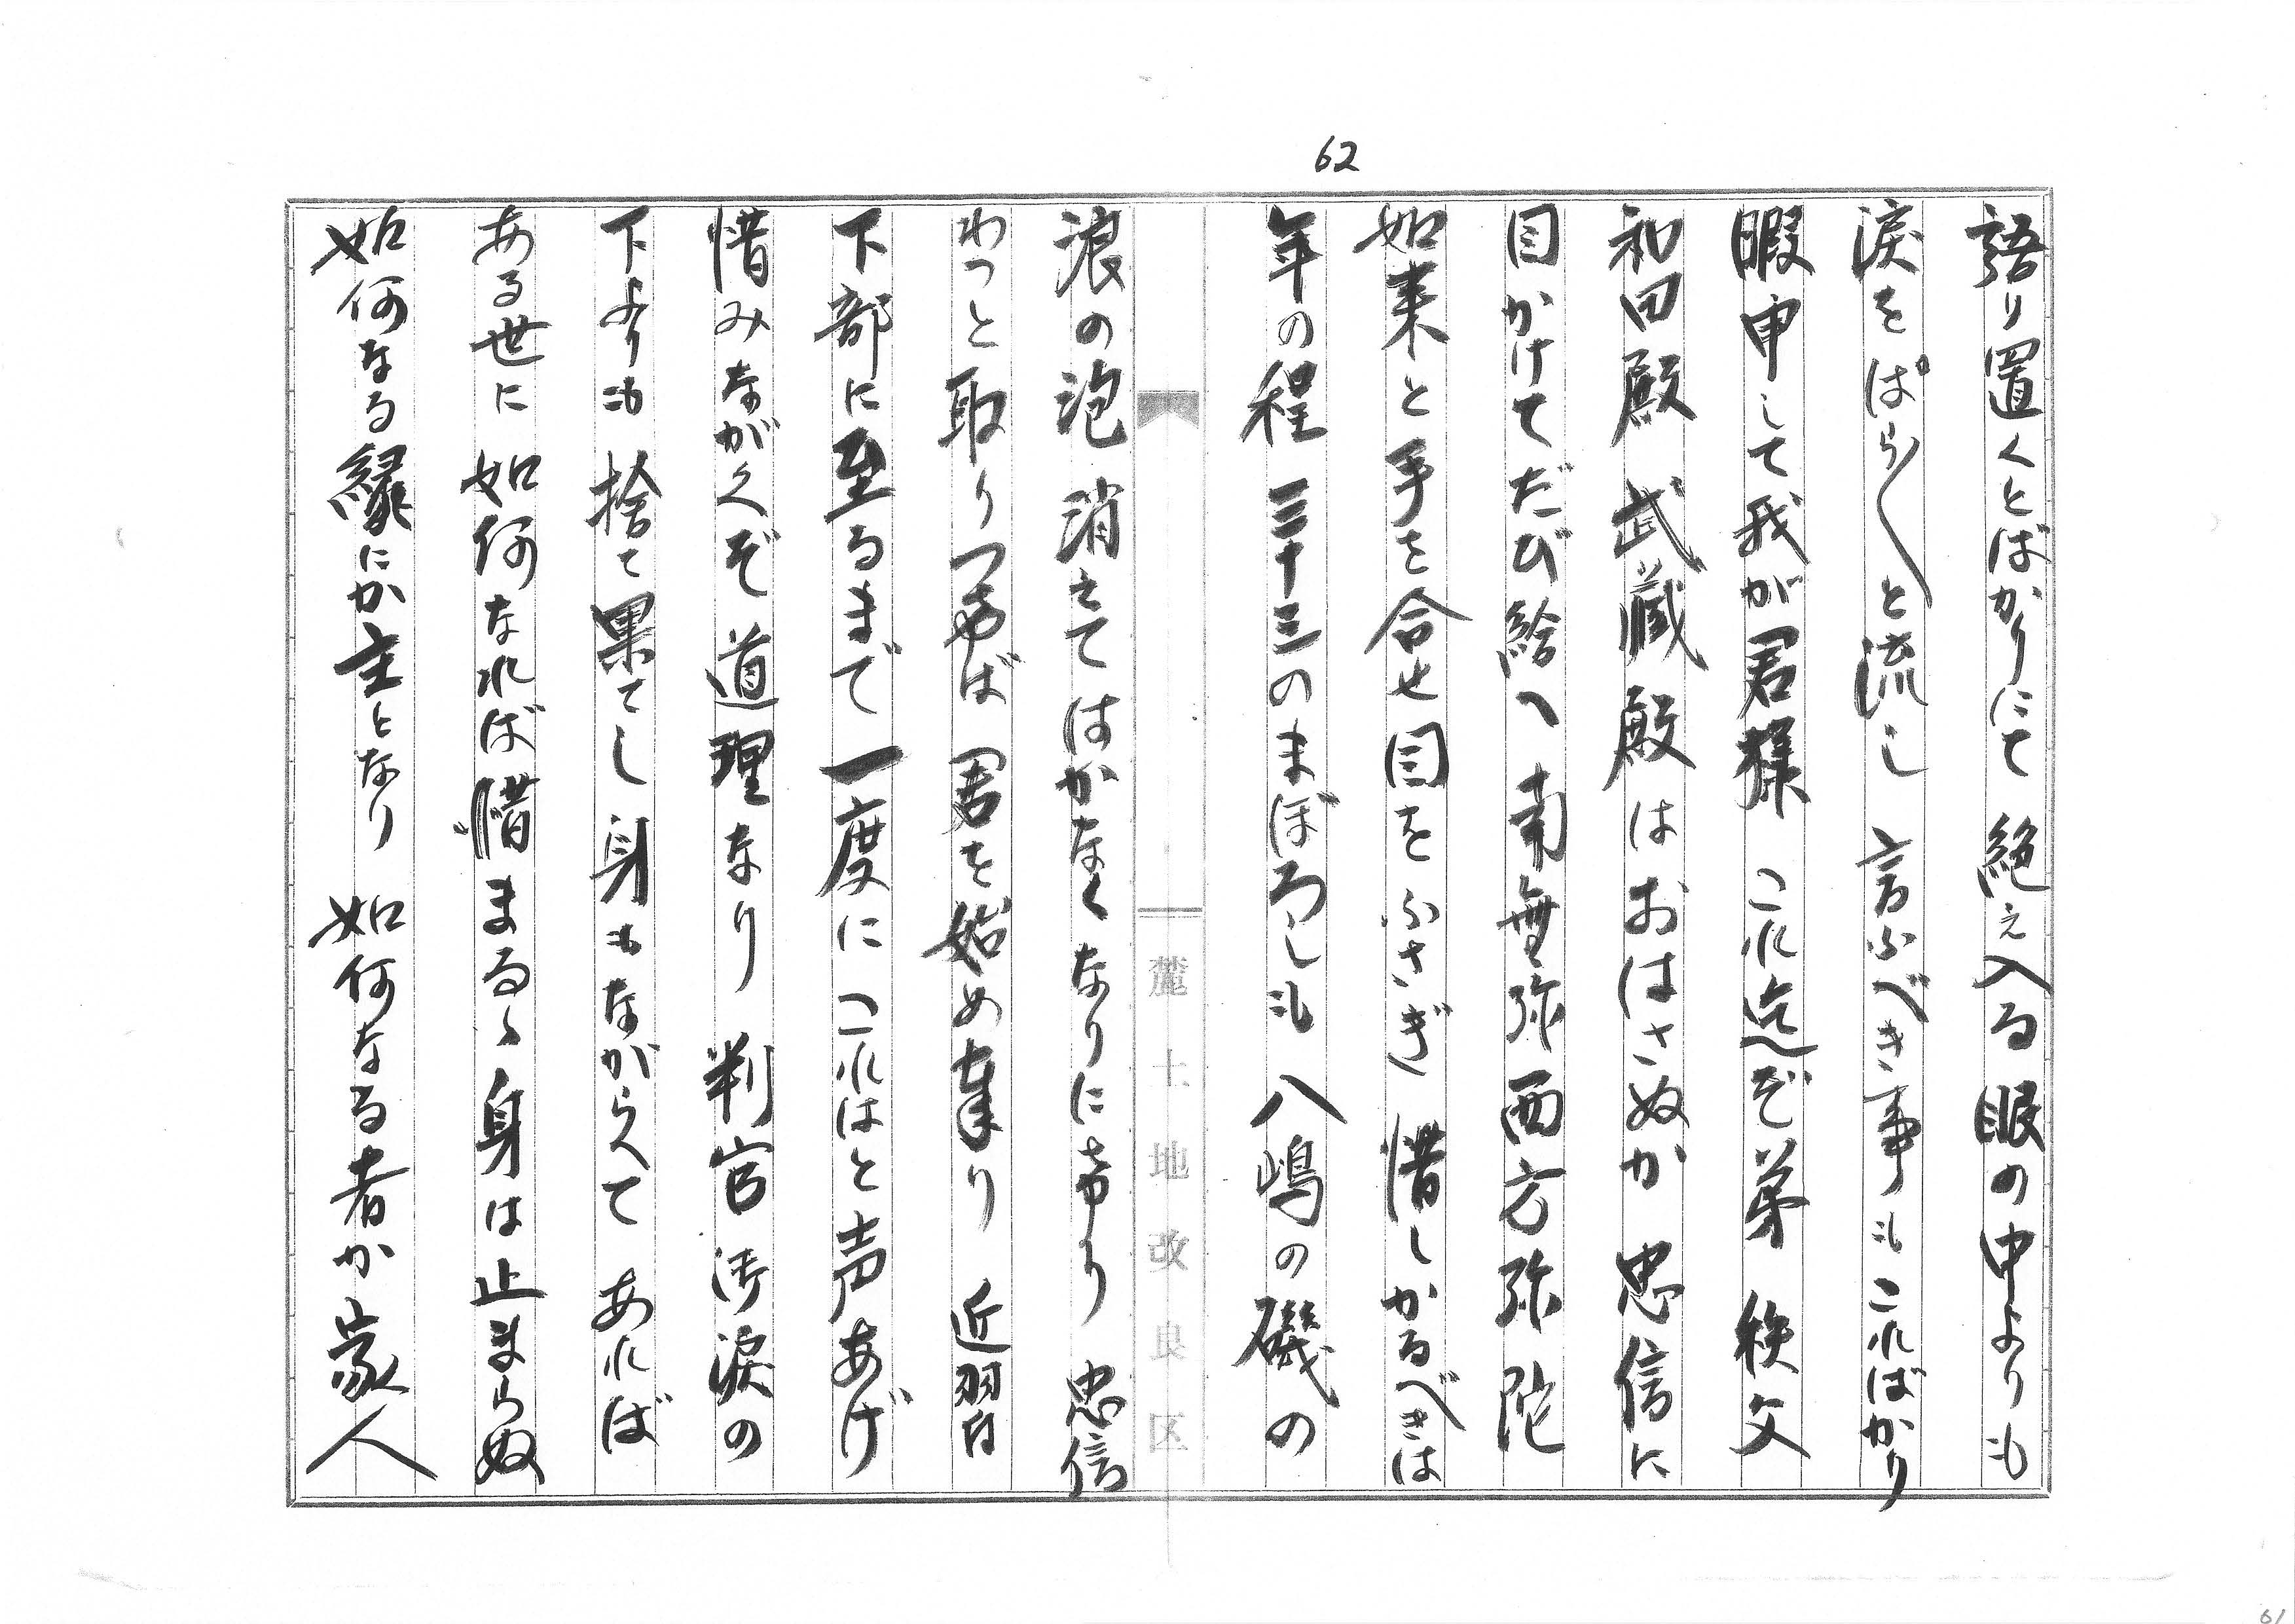 62
語り置くとばかりにて 絶え入る眼の中よりも
涙をぱら〱と流し 言ふべき事もこればかり
暇申して我が君様 これ迄ぞ弟 秩父
和田殿 武蔵殿はおはさぬか 忠信に
目かけてたび給へ 南無弥西方弥陀
如来と手を合せ目をふさぎ 惜しかるべきは
年の程 三十三のまぼろしも 八嶋の磯の
浪の泡 消えてはかなくなりにけり 忠信
わっと取りつけば 君を始め奉り 近習
下部に至るまで 一度にこれはと声あげ
惜みなげくぞ 道理なり 判官御涙の
下よりも 捨て果てし身もながらへて あれば
ある世に 如何なれば惜まるゝ身は止まらぬ
如何なる縁にか主となり 如何なる者か家人
麓土地改良区
61